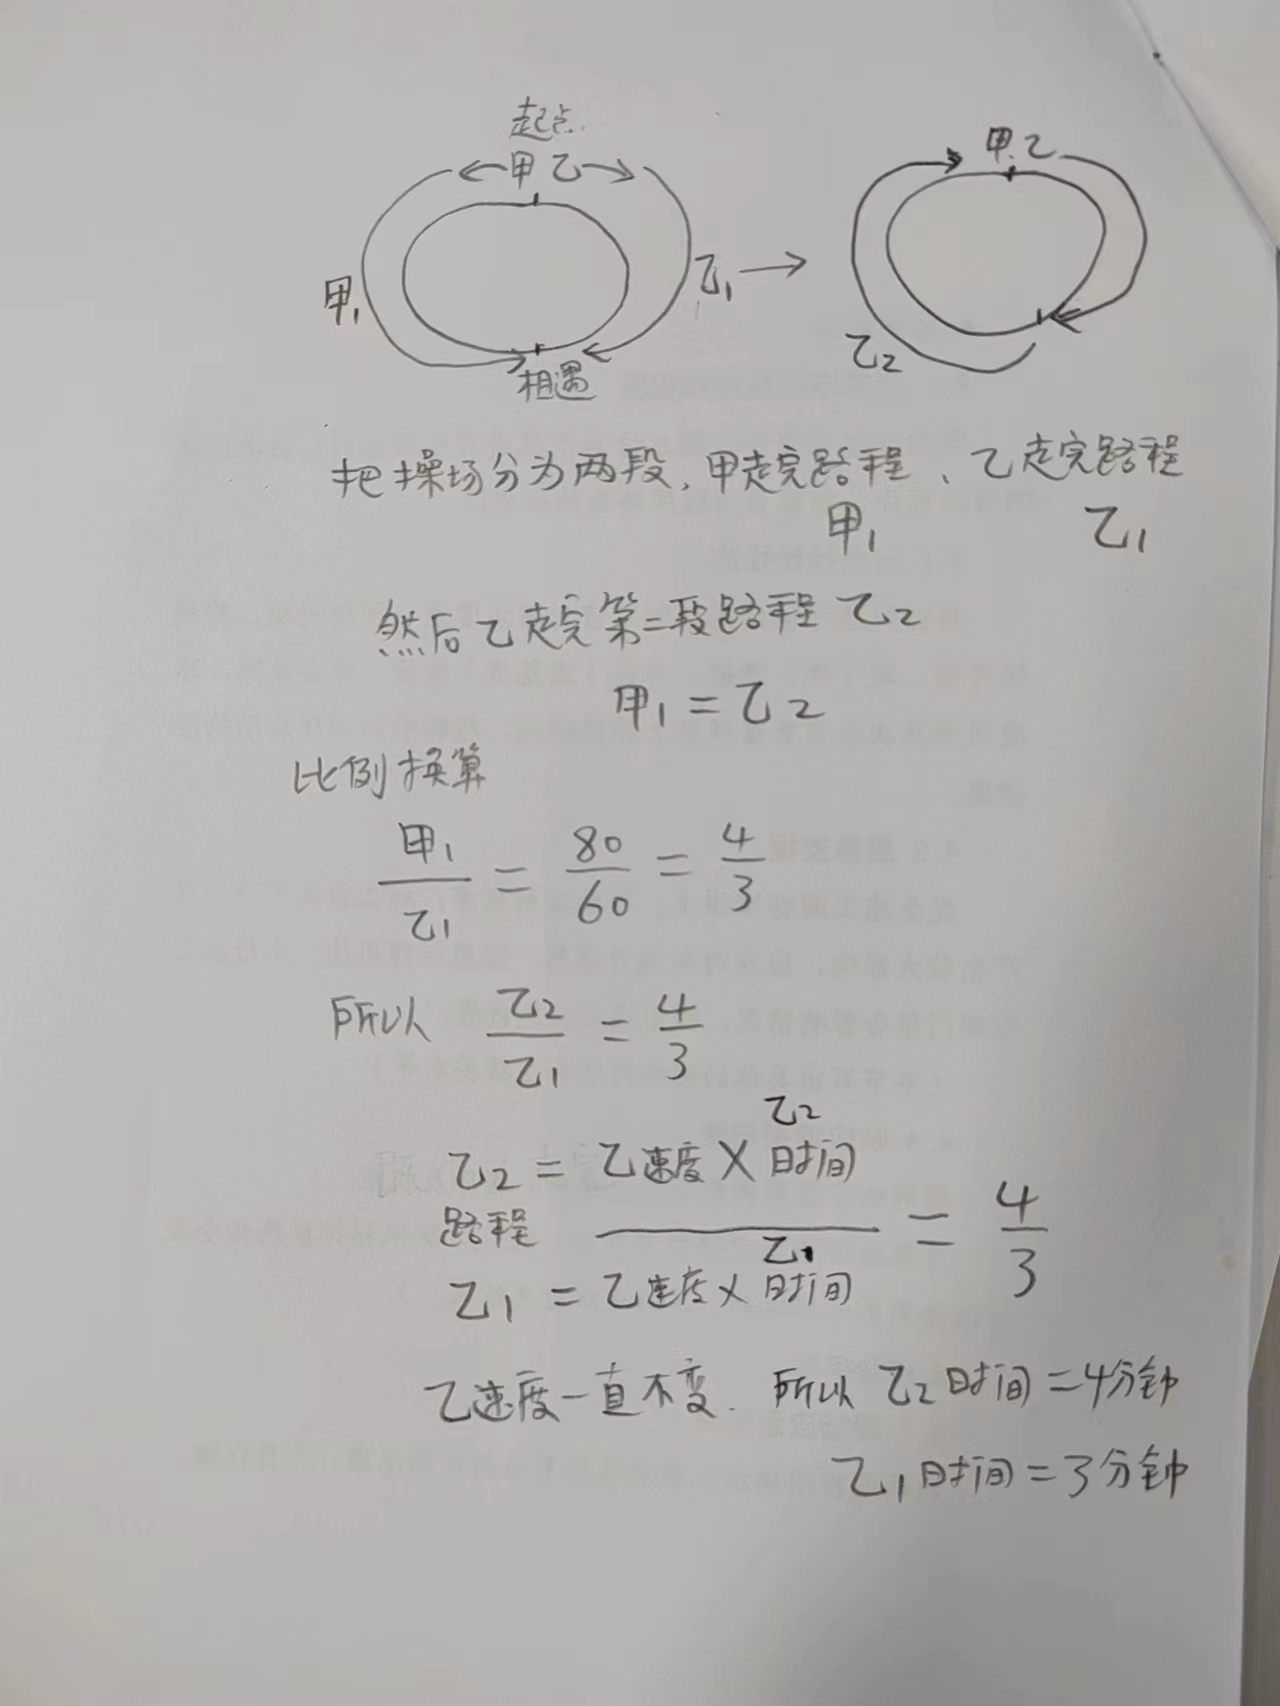 起点
甲 乙
甲1
乙1
相遇
甲.乙
乙2
把操场分为两段,甲走完路程、乙走完路程
甲1 乙1
然后乙走完第二段路程乙2
甲1=乙2
比例换算
甲1/乙1 = 80/60 = 4/3
所以 乙2/乙1 = 4/3
乙2
乙2 = 乙速度×时间
路程 = 4/3
乙1
乙1 = 乙速度×时间
乙速度一直不变. 所以 乙2时间=4分钟
乙1时间=3分钟